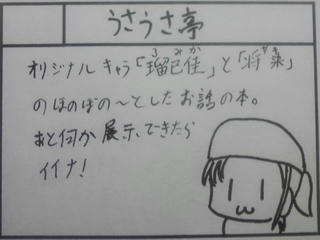 うさうさ亭
オリジナルキャラ「瑠巳佳」と「将来」
のほのぼの〜としたお話の本。
あと何か展示できたら
イイナ!